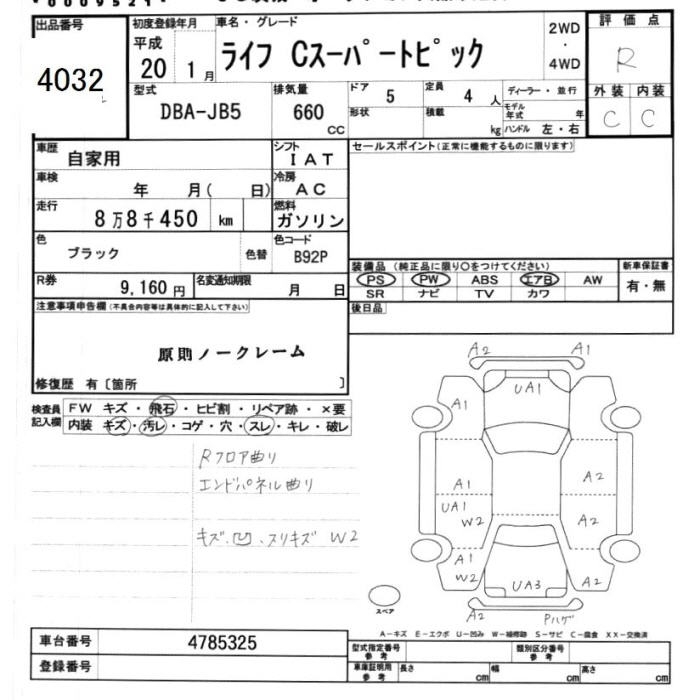 出品番号 初度登録年月 車名・グレード 2WD 評価点
4032 平成 20 1月 ライフ Cスーパートピック ・ 4WD R
型式 排気量 ドア 5 定員 4人 ディーラー・並行 外装 内装
DBA-JB5 660 CC 形状 積載 kg モデル年式 年 C C
ハンドル 左・右
車歴 自家用 シフト IAT セールスポイント(正常に機能するものに限ります)
車検 年 月( 日) 冷房 AC
走行 8万8千450 km 燃料 ガソリン
色 ブラック 色替 色コード B92P
装備品 (純正品に限り○をつけてください) 新車保証書
R券 9,160円 名変通知期限 月 日 PS PW ABS エアB AW 有・無
SR ナビ TV カワ
注意事項申告欄(不具合内容等は具体的に記入して下さい) 後日品
原則ノークレーム
修復歴 有〔箇所 〕
検査員記入欄 FW キズ・飛石・ヒビ割・リペア跡・×要
内装 キズ・汚レ・コゲ・穴・スレ・キレ・破レ
Rフロア曲り
エンドパネル曲り
キズ、凹、スリキズ W2
A2 A1
UA1
A1
A1 A2
UA1
W2 A2
A1
W2 UA3 A2
スペア A2 Pハゲ
A-キズ E-エクボ U-凹み W-補修跡 S-サビ C-腐食 XX-交換済
車台番号 4785325 型式指定番号 参考 類別区分番号 参考
登録番号 車庫証明用 参考 長さ cm 幅 cm 高さ cm